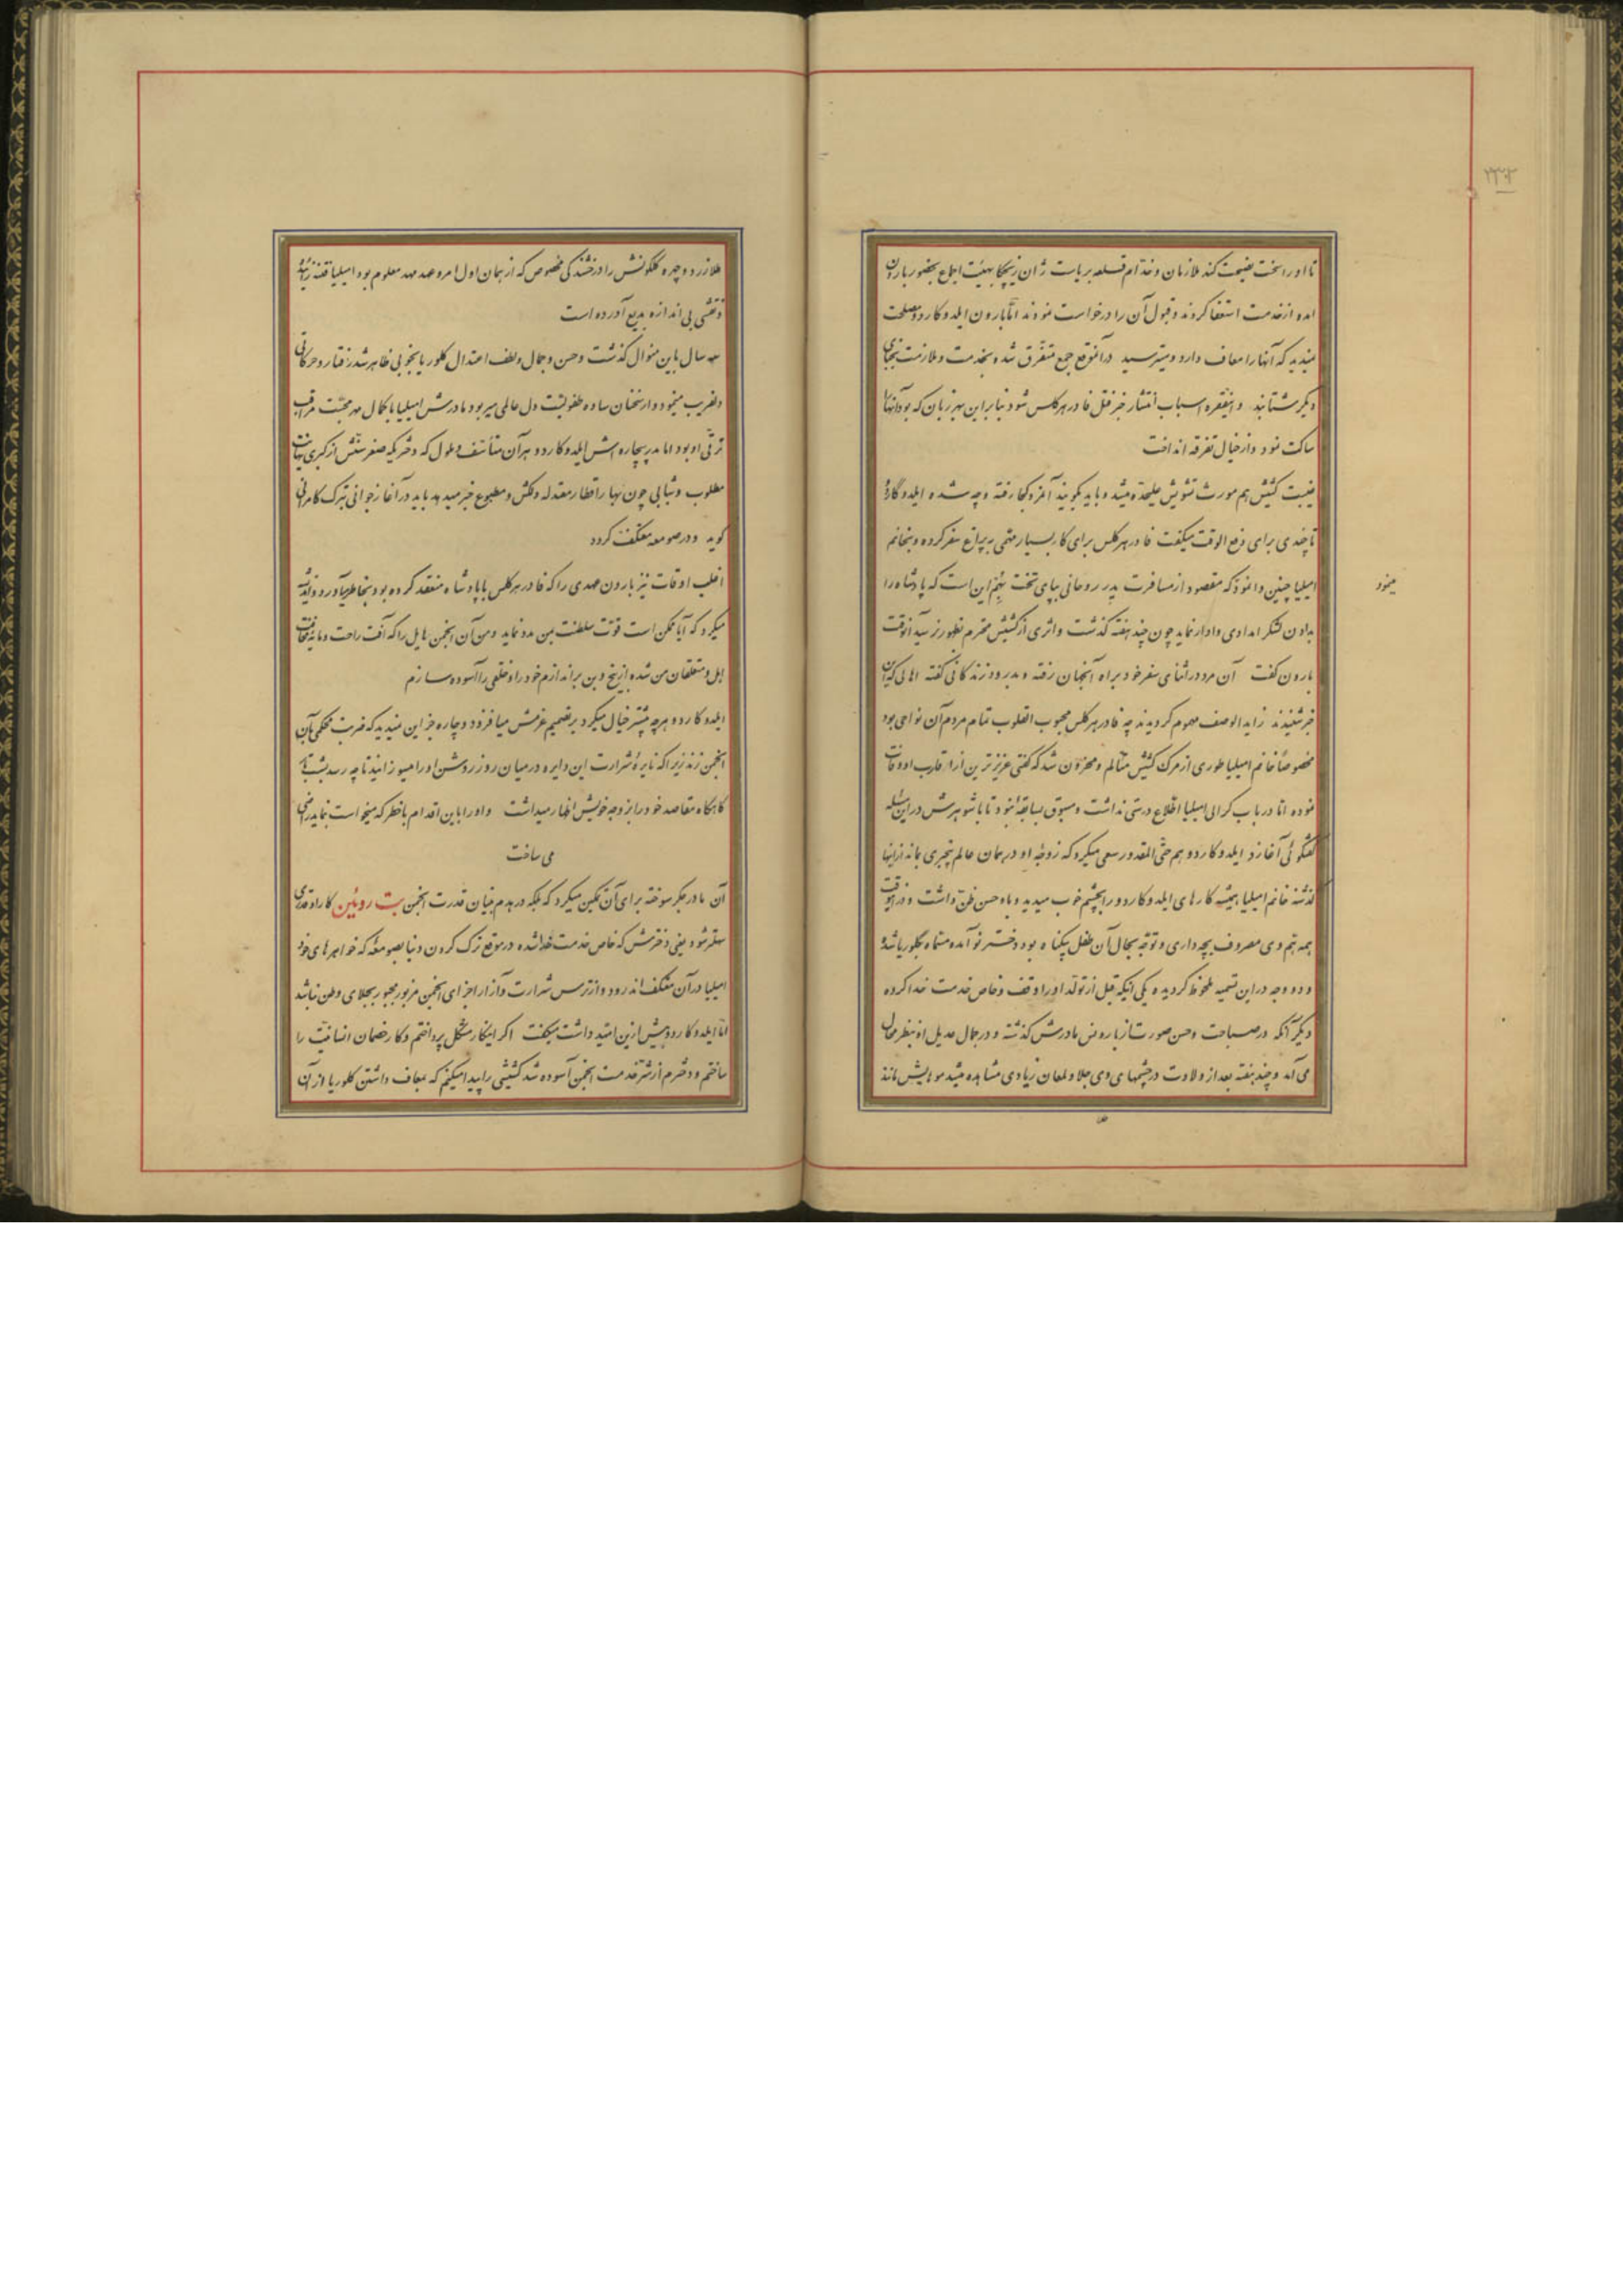 ۲۳۰۳
تا او را سخت نصیحت کند ملازمان و خدّام قلعه بریاست ژان زیچکا بهیئت اجماع بحضور بارون
امده از خدمت استعفا کردند و قبول آن را درخواست نمودند امّا بارون ایلدوکاردو مصلحت
نمیدید که آنها را معاف دارد و میترسید در آنموقع جمع متفرّق شده بخدمت و ملازمت نجبای
دیگر شتابند و اینفقره اسباب انتشار خبر قتل فادر هرکلس شود بنابراین بهر زبان که بود آنها را
ساکت نمود و از خیال تفرقه انداخت
غیبت کشیش هم مورث تشویش علیحده میشد و باید بگویند آنمرد کجا رفته و چه شده ایلدوکاردو
تا چندی برای دفع الوقت میگفت فادر هرکلس برای کار بسیار مهمّی به پراغ سفر کرده و بخانم
امیلیا چنین وانمود که مقصود از مسافرت پدر روحانی بپای تخت بهم این است که پادشاه را
میمود
بدادن لشکر امدادی وادار نماید چون چند هفته گذشت و اثری از کشیش محترم بظهور نرسید آنوقت
بارون گفت آن مرد در اثنای سفر خود براه آنجهان رفته و بدرود زندگانی گفته اهالی که این
خبر شنیدند زاید الوصف مهموم گردیدند چه فادر هرکلس محبوب القلوب تمام مردم آن نواحی بود
مخصوصاً خانم امیلیا طوری از مرگ کشیش متألم و محزون شد که گفتی عزیزترین از اقارب او وفات
نموده امّا در باب کرالی امیلیا اطّلاع درستی نداشت و مسبوق بسابقه نبود تا با شوهرش در این مسئله
گفتگوئی آغازد ایلدوکاردو هم حتّی المقدور سعی میکرد که زوجه او در همان عالم بیخبری بماند از اینها
گذشته خانم امیلیا همیشه کارهای ایلدوکاردو را بچشم خوب میدید و باو حسن ظنّ داشت و در انوقت
همه همّ وی مصروف بچه داری و توجّه بحال آن طفل بیگناه بود دختر نو آمده مسمّاه بگلوریا شد
و دو وجه در این تسمیه ملحوظ گردیده یکی اینکه قبل از تولّد او را وقف و خاص خدمت خدا کرده
دیگر آنکه در صباحت و حسن صورت از بارونس مادرش گذشته و در جمال عدیل او بنظر محال
می آمد و چند هفته بعد از ولادت در چشمهای وی جلا و لمعان زیادی مشاهده میشد موهایش مانند
طلا زرد و چهره گلگونش را درخشندگی مخصوص که از همان اول امر و عهد مهد معلوم بود امیلیا فتنه زائیده
و نقشی بی اندازه بدیع آورده است
سه سال باین منوال گذشت و حسن و جمال و لطف اعتدال گلوریا بخوبی ظاهر شد رفتار و حرکاتی
دلفریب مینمود و از سخنان ساده طفولیت دل عالمی میربود مادرش امیلیا با کمال مهر محبّت مراقب
ترقّی او بود اما پدر بیچاره اش ایلدوکاردو هر آن متأسّف و ملول که دختریکه صغر سنّش از کبری بغایت
مطلوب و شبابی چون بهار اقطار معتدله دلکش و مطبوع خبر میدهد باید در آغاز جوانی ترک کامرانی
گوید و در صومعه معتکف گردد
اغلب اوقات نیز بارون عهدی را که فادر هرکلس با پادشاه منعقد کرده بود بخاطر میآورد و اندیشه
میکرد که آیا ممکن است قوّت سلطنت بمن مدد نماید و من آن انجمن هایل را که آفت راحت و مایه مخافت
اهل و متعلقان من شده از بیخ و بن براندازم خود را و خلقی را آسوده سازم
ایلدوکاردو هر چه بیشتر خیال میکرد بر تصمیم عزمش میافزود و چاره جز این نمیدید که ضربت محکمی بآن
انجمن زند زیرا که نایره شرارت این دایره در میان روز روشن او را میسوزانید تا چه رسد بشبها
گاهگاه مقاصد خود را بزوجه خویش اظهار میداشت و او را باین اقدام با خطر که میخواست بنماید راضی
می ساخت
آن مادر جگر سوخته برای آن تمکین میکرد که بلکه در هدم بنیان قدرت انجمن بت روئین کار او قدری
سهلتر شود یعنی دخترش که خاص خدمت خدا شده در موقع ترک کردن دنیا بصومعهٔ که خواهرهای خود
امیلیا در آن معتکف اند رود و از ترس شرارت و آزار اجزای انجمن مزبور مجبور بجلای وطن نباشد
امّا ایلدوکاردو بیش از این امید داشت میگفت اگر اینکار مشکل پرداختم و کار خصمان انسانیّت را
ساختم و دخترم از شرّ خدمت انجمن آسوده شد کشیشی را پیدا میکنم که بمعاف داشتن گلوریا از آن